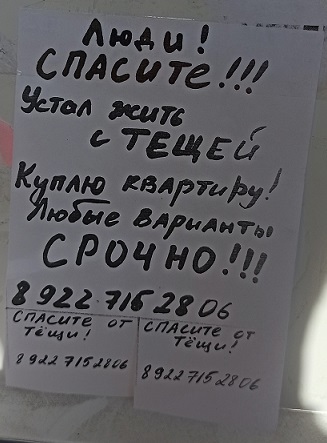 Люди!
СПАСИТЕ!!!
Устал жить
с ТЕЩЕЙ
Куплю квартиру!
Любые варианты
СРОЧНО!!!
8 922 715 28 06
СПАСИТЕ от
Тёщи!
8 922 715 28 06
СПАСИТЕ от
Тёщи!
8 922 715 28 06